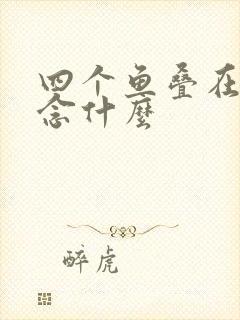 四个鱼叠在
念什麼
醉虎